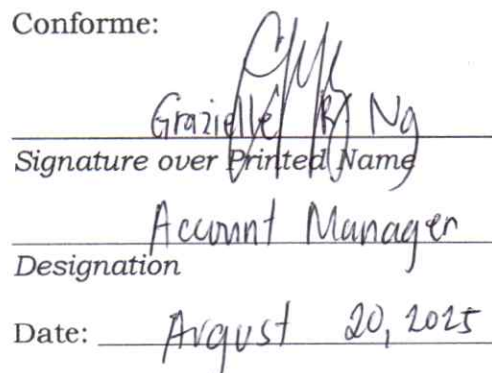 Conforme:
Grazielle R. Ng
Signature over Printed Name
Account Manager
Designation
Date: August 20, 2025